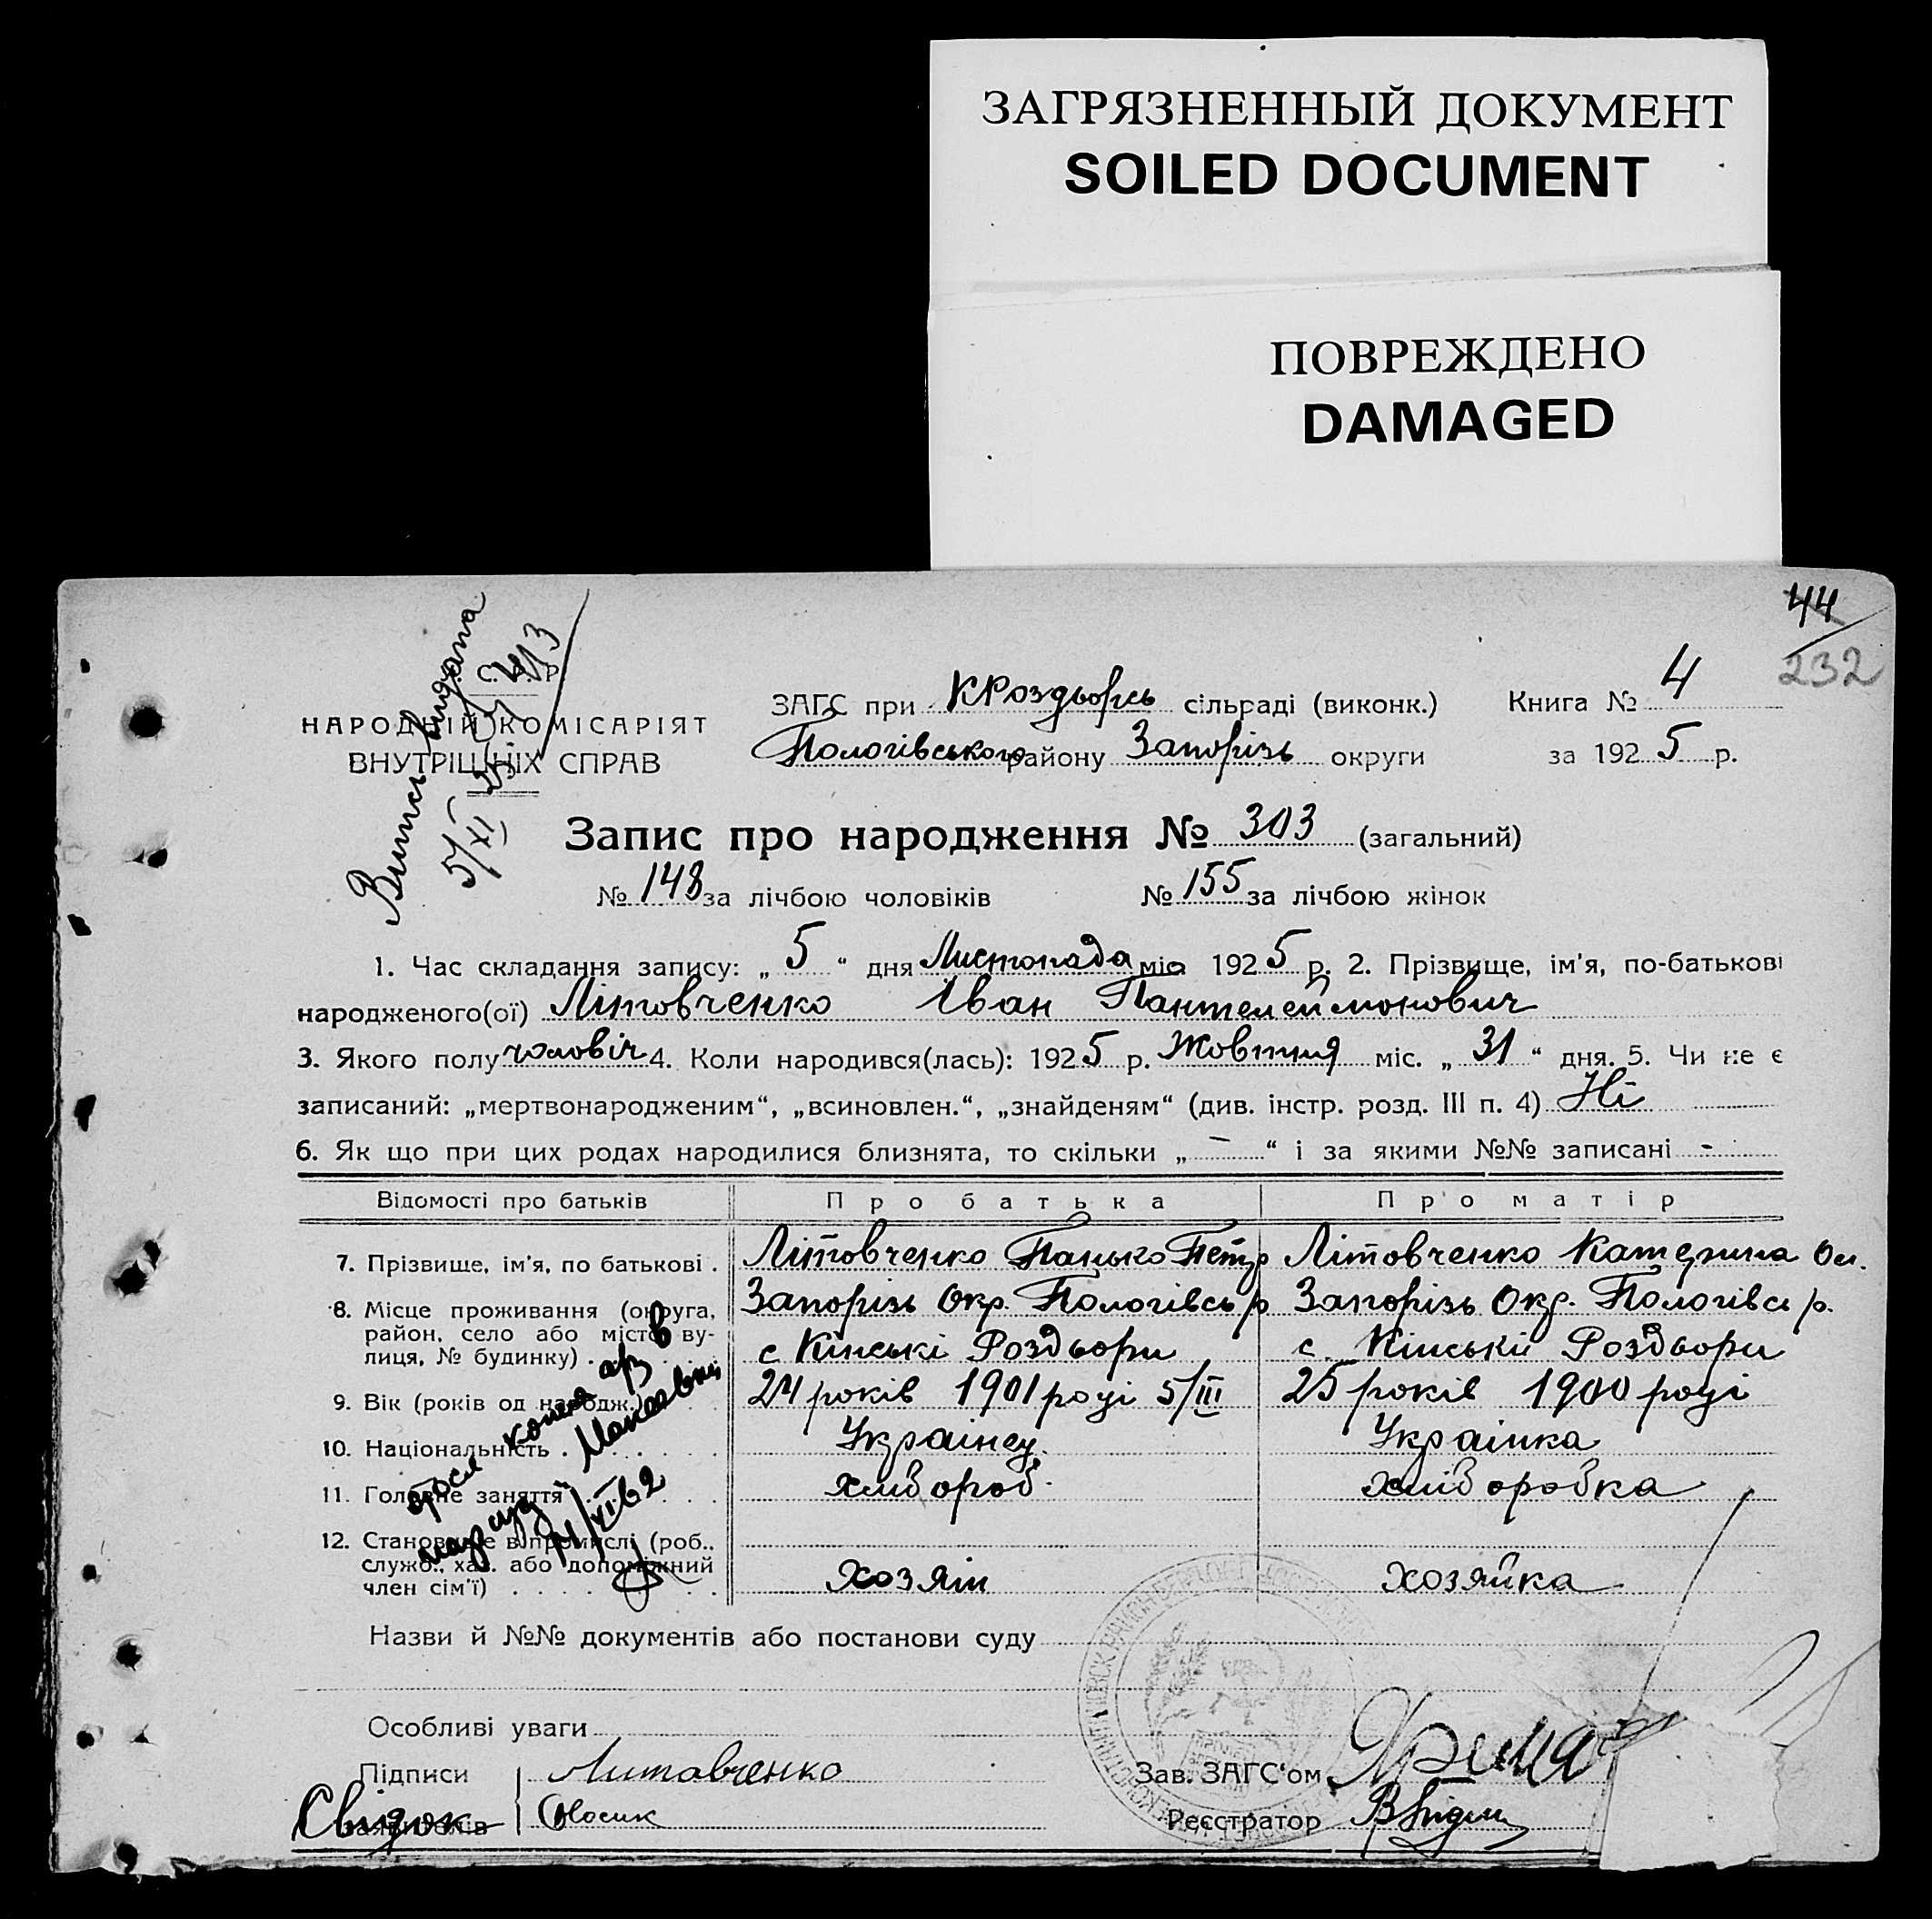 ЗАГРЯЗНЕННЫЙ ДОКУМЕНТ
SOILED DOCUMENT
ПОВРЕЖДЕНО
DAMAGED
44
232
Випись видана
С. Р.
7413
5/XI 25
НАРОДНІЙ КОМІСАРІЯТ
ВНУТРІШНІХ СПРАВ
ЗАГС при КРоздворсь сільраді (виконк.) Книга № 4
Пологівського району Запорізь округи за 1925 р.
Запис про народження № 303 (загальний)
№ 148 за лічбою чоловіків № 155 за лічбою жінок
1. Час складання запису: „ 5 “ дня Листопада міс 1925 р. 2. Прізвище, ім'я, по-батькові
народженого(ої) Літовченко Іван Пантелеймонович
3. Якого полу чоловіч 4. Коли народився(лась): 1925 р. Жовтня міс. „ 31 “ дня. 5. Чи не є
записаний: „мертвонародженим“, „всиновлен.“, „знайденям“ (див. інстр. розд. III п. 4) Ні
6. Як що при цих родах народилися близнята, то скільки „ — “ і за якими №№ записані -
Відомості про батьків Про батька Про матір
7. Прізвище, ім'я, по батькові . Літовченко Панько Петр Літовченко Катерина Ол.
8. Місце проживання (округа, район, село або місто ву-лиця, № будинку) . Запорізь Окр. Пологівсь р Запорізь Окр. Пологівсь р.
с Кінські Роздори с. Кінські Роздори
9. Вік (років од народж.) 24 років 1901 році 5/III 25 років 1900 році
10. Національність . Українец. Українка
11. Головне заняття хлібороб. хліборобка
12. Становище в промислі (роб., служб., хаз. або допоміжний член сім'ї) . хозяін хозяйка
Назви й №№ документів або постанови суду
Особливі уваги
Підписи Литовченко Зав. ЗАГС'ом
Свідок заявителів Носик Реєстратор